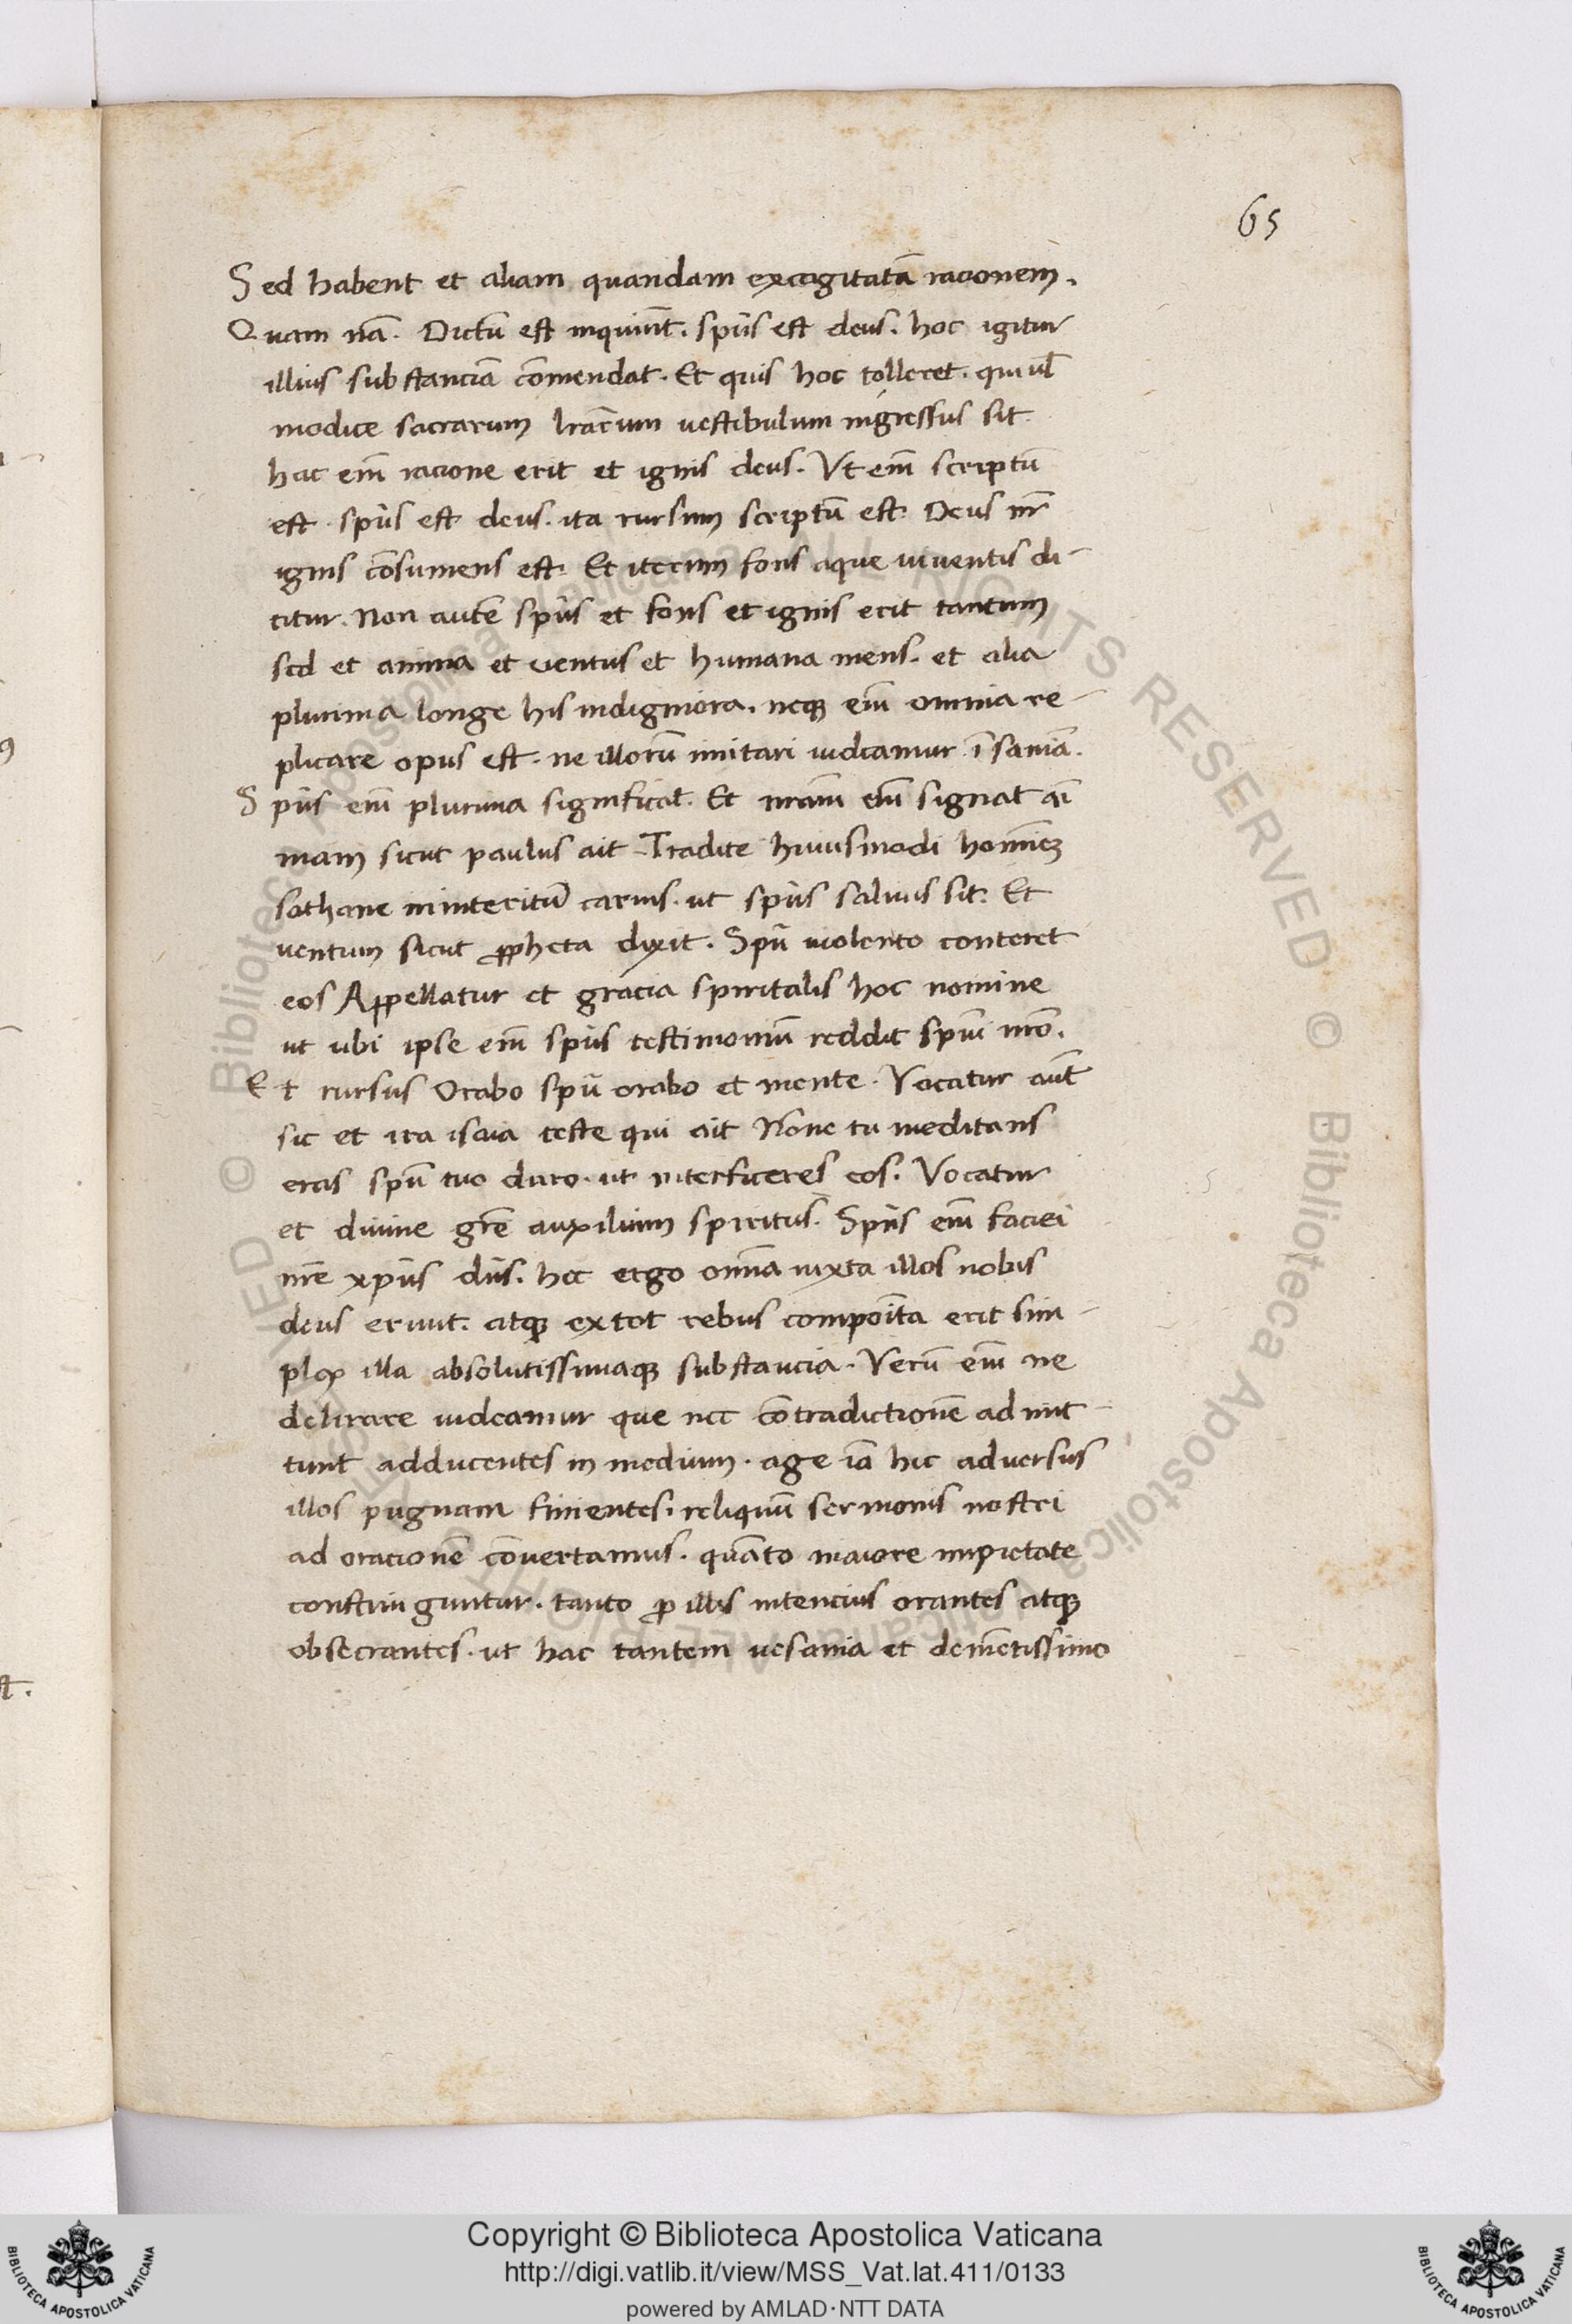 65
Sed habent et aliam quandam excogitatā racionem.
Quam nā. Dictū est inquiūt. spūs est deus. hoc igitur
illius substanciā cōmendat. Et quis hoc tolleret. qui ul̄
modice sacrarum lrārum vestibulum ingressus sit
hac em̄ racione erit et ignis deus. Ut em̄ scriptū
est. spūs est deus. ita rursum scriptū est. Deus nr̄
ignis cōsumens est. Et iterum fons aque viventis di-
citur. Non autē spūs et fons et ignis erit tantum
sed et anima et ventus et humana mens. et alia
plurima longe his indigniora. neqȝ em̄ omnia re-
plicare opus est. ne illorū imitari videamur īsaniā.
Spūs em̄ plurima significat. Et nr̄am em̄ signat aī
mam sicut paulus ait Tradite huiusmodi hoīnem
sathane in interitū carnis. ut spūs salvus sit. Et
ventum sicut ꝓpheta dixit. Spū violento conteret
eos Appellatur et gracia spiritalis hoc nomine
ut ubi ipse em̄ spūs testimoniū reddit spūi nr̄o.
Et rursus Orabo spū orabo et mente. Vocatur aūt
sic et ira isaia teste qui ait Nōne tu meditans
eras spū tuo duro. ut interficeres eos. Vocatur
et divine grē auxilium spiritus. Spūs em̄ faciei
nrē xpūs dūs. hec ergo omīa iuxta illos nobis
deus erunt. atqȝ ex tot rebus compoīta erit sim-
plex illa absolutissimaqȝ substancia. Verū em̄ ne
delirare videamur que nec cōtradictionē admit-
tunt adducentes in medium. age iā hic adversus
illos pugnam finientes. reliquū sermonis nostri
ad oracionē cōvertamus. quāto maiore impietate
constringuntur. tanto ꝓ illis intencius orantes atqȝ
obsecrantes. ut hac tantem vesania et demētissimo
Copyright © Biblioteca Apostolica Vaticana
http://digi.vatlib.it/view/MSS_Vat.lat.411/0133
powered by AMLAD·NTT DATA